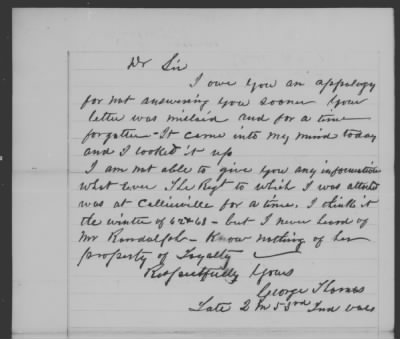 Dr Sir
I owe you an appology
for not answering you sooner your
letter was mislaid and for a time
forgotten - It came into my mind today
and I looked it up
I am not able to give you any information
what ever The Regt to which I was attached
was at Colliersville for a time, I think it
the winter of 62 & 63 - but I never heard of
Mr Randolph - Know nothing of her
property or Loyalty
Respectfully Yours
George Thomas
Late 2 53rd Ind vols